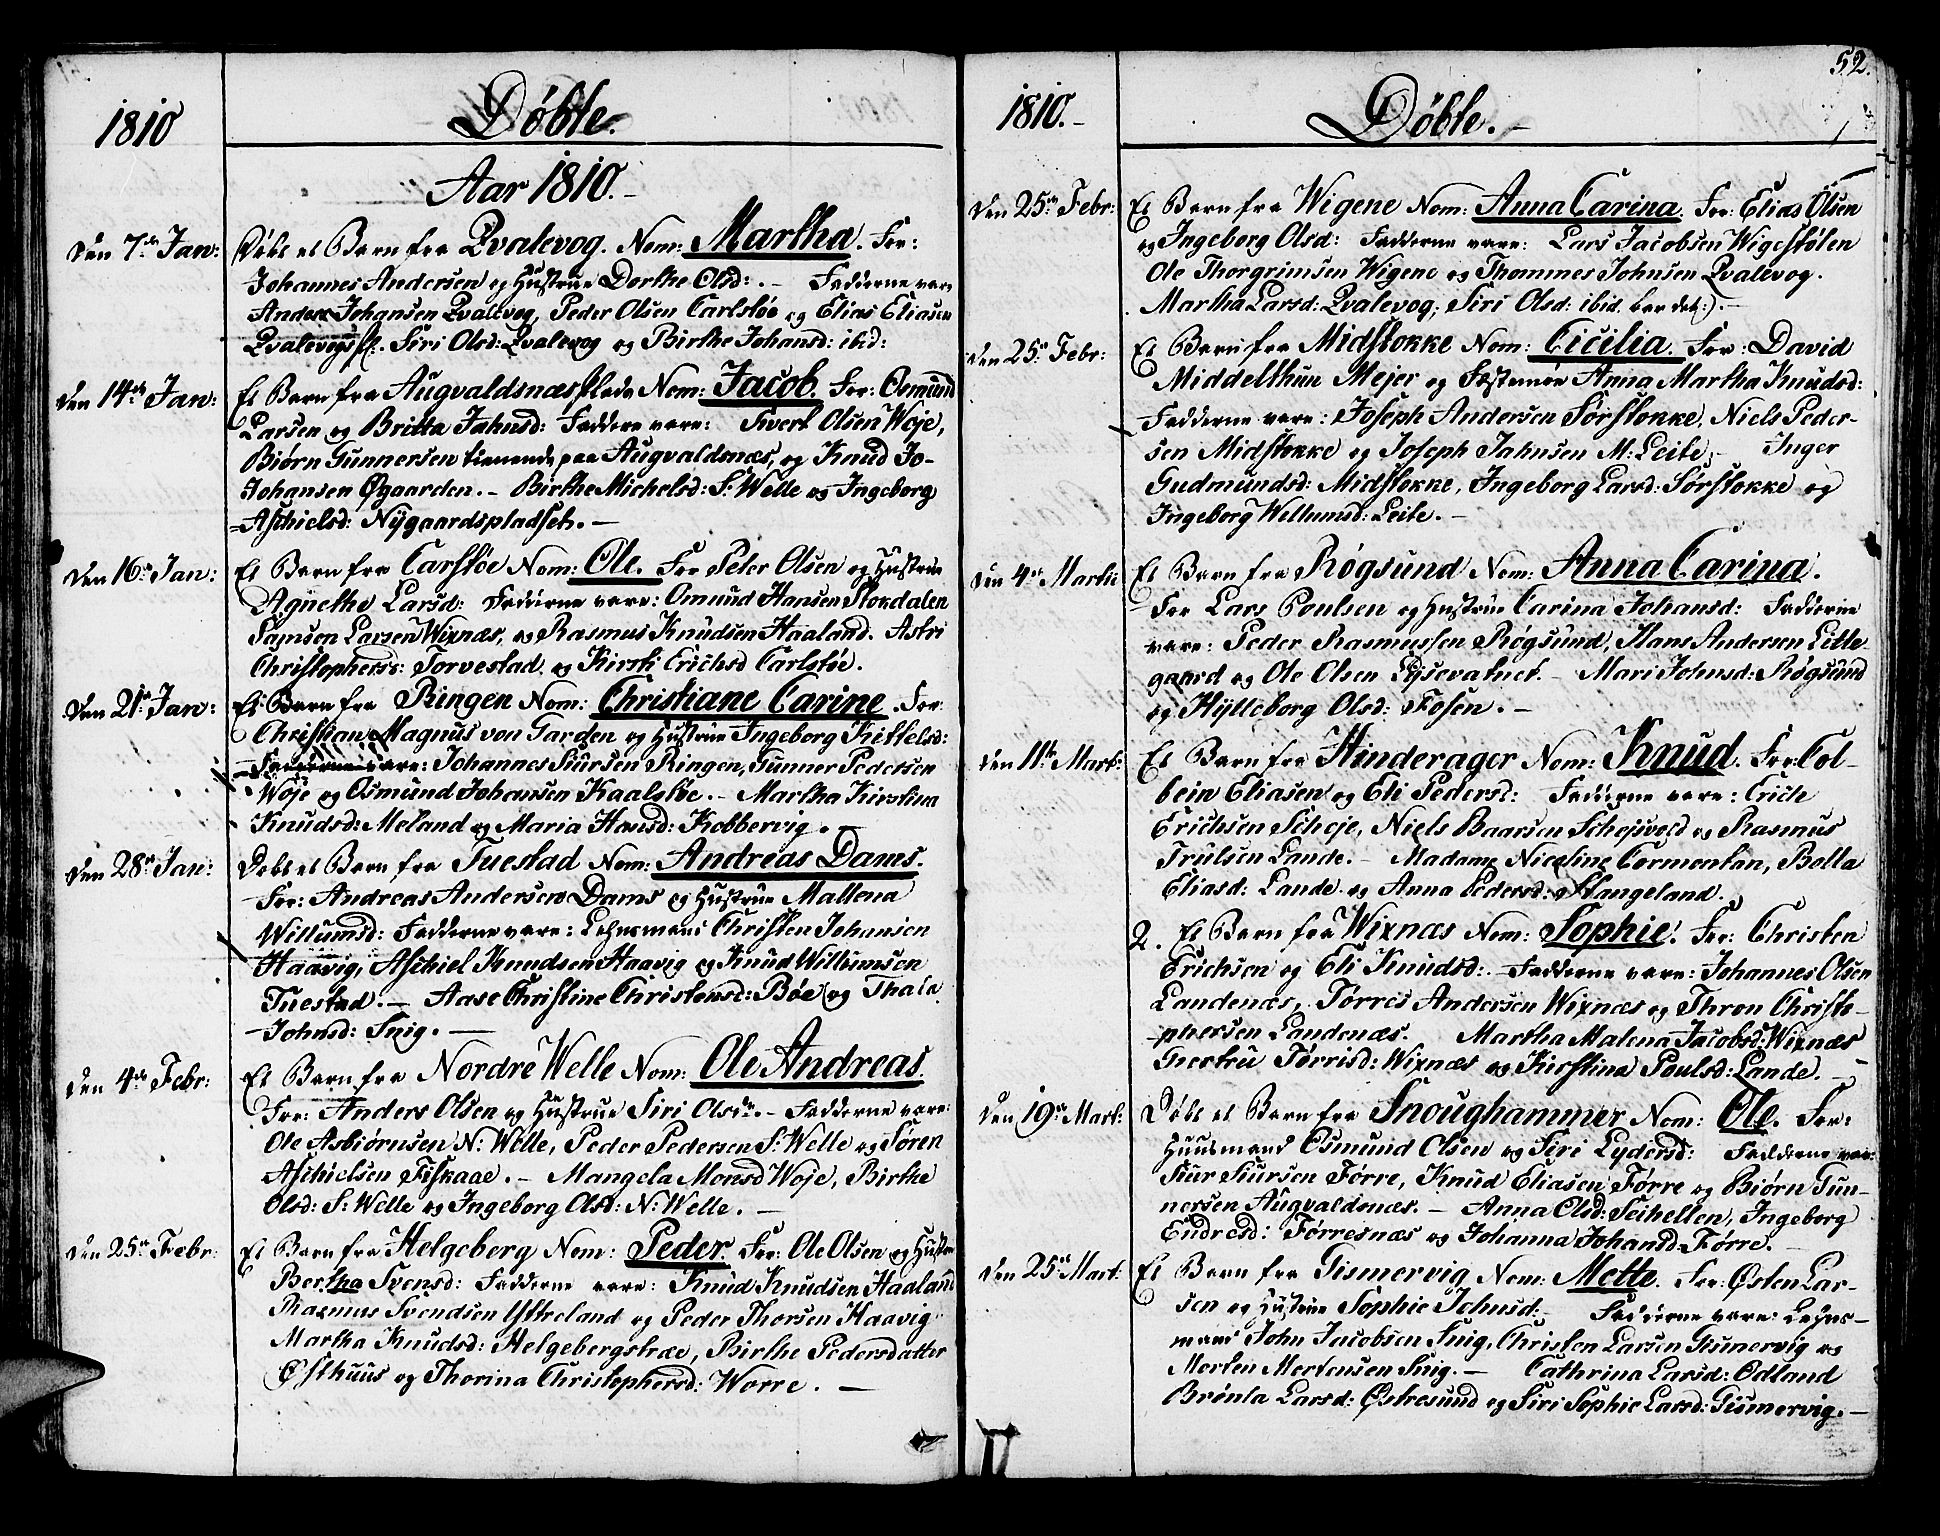 1810
Döbte.
Aar 1810.-
Den 7de Jan:
Döbt et Barn fra Qvalevog. Nom: Martha. For:
Johannes Andersen og Hustrue Dorthe Olsd:.- Fadderne vare
Anders Johansen Qvalevog, Peder Olsen Carlstöe og Elias Eliasen
Siri Olsd: Qvalevog og Birthe Johansd: ibid:
Den 14de Jan:
Et Barn fra Augvaldsnæs Nom: Jacob. For: Osmund
Larsen og Britta Jahnsd: Faddere vare: Sivert Olsen Woje,
Biörn Gunnersen tienende paa Augvaldsnæs, og Knud Jo-
Johansen Øgaarden.- Birthe Michelsd: S: Welle og Ingeborg
Aschielsd: Nygaardspladset.-
Den 16de Jan:
Et Barn fra Carstöe Nom: Ole. For Peter Olsen og Hustrue
Agnethe Larsd: Fadderne vare: Omund Hansen Stokdalen
Samson Larsen Wixnæs, og Rasmus Knudsen Haaland. Astri
Christophersd: Torvestad og Kirsti Erichsd Carlstöe.
Den 21de Jan:
Et Barn fra Ringen Nom: Christiane Carine. For:
Christian Magnus von Garden og Hustrue Ingeborg Kittelsd:
Fadderne vare: Johannes Siursen Ringen, Gunner Pedersen
Woje og Osmund Johansen Kaalstöe.- Martha Kirstina
Knudsd: Meland og Maria Hansd: Kobbervig.-
Den 28de Jan:
Döbt et Barn fra Tuestad Nom: Andreas Dams.
For: Andreas Andersen Dams og Hustrue Mallena
Willumsd: Fadderne vare: Lehnsmand Christen Johansen
Haavig, Aschiel Knudsen Haavig og Knud Willumsen
Tuestad.- Aase Christine Christensd: Böe og Thala
Johnsd: Snig.-
Den 4de Febr:
Et Barn fra Nordre Welle Nom: Ole Andreas.
For: Anders Olsen og Hustrue Siri Olsdr.- Fadderne vare:
Ole Asbiörnsen N: Welle, Peder Pedersen S: Welle og Sören
Aschielsen Fiskaae.- Mangela Monsd Woje, Birthe
Olsd: S: Welle og Ingeborg Olsd: N: Welle.-
Den 25de Febr:
Et Barn fra Helgeberg Nom: Peder. For: Ole Olsen og Hustru
Bertha Svensd: Fadderne vare: Knud Knudsen Haaland
Rasmus Svendsen Ystreland og Peder Thorsen Haavig
Martha Knudsd: Helgebergstræe, Birthe Pedersdatter
Østhuus og Thorina Christophersd: Worre.-
52.
1810.-
Döbte.-
Den 25de Febr:
Et Barn fra Wigene Nom: Anna Carina. For: Elias Olsen
og Ingeborg Olsd: Fadderne vare: Lars Jacobsen Wigestölen
Ole Thorgrimsen Wigene og Thommes Johnsen Qvalevog.
Martha Larsd: Qvalevog, Siri Olsd: ibid. bar det:).-
Den 25de Febr:
Et Barn fra Midstokke Nom: Cicilia. For: David
Middelthun Mejer og Fæstemöe Anna Martha Knudsd:
Fadderne vare: Joseph Andersen Sörstokke, Niels Peder-
sen Midstokke og Joseph Jahnsen M: Leite,- Inger
Gudmundsd: Midstokke, Ingeborg Larsd: Sörstokke og
Ingeborg Wellumsd: Leite.-
Den 4de Martii
Et Barn fra Rögsund Nom: Anna Carina.
For Lars Poulsen og Hustrue Carina Johansd: Fadderne
vare: Peder Rasmussen Rögsund, Hans Andersen Litle-
gaard og Ole Olsen Lysevatnet.- Mari Johnsd: Rögsund
og Hylleborg Olsd: Fosen.-
Den 11te Mart:
Et Barn fra Hinderager Nom: Knud. For: Col-
bein Eliasen og Eli Pedersd: Fadderne vare: Erich
Erichsen Scheje, Niels Baarsen Schejsvold og Rasmus
Trulsen Lande.- Madame Nicoline Cormontan, Bolla
Eliasd: Lande og Anna Pedersd: Stangeland.
2. Et Barn fra Wixnæs Nom: Sophie. For: Christen
Erichsen og Eli Knudsd:- Fadderne vare: Johannes Olsen
Landenæs, Törres Andersen Wixnæs og Thron Christo-
phersen Landenæs. Martha Malena Jacobsd: Wixnæs
Törrisd: Wixnæs og Kirstina Poulsd: Lande.-
Den 19de Mart:
Döbt et Barn fra Snoughammer Nom: Ole. For:
Huusmand Osmund Olsen og Siri Lydersd: Fadderne var:
Siur Siursen Förre, Knud Eliasen Förre og Biörn Gun-
nersen Augvaldsnæs.- Anna Olsd: Seihellen, Ingeborg
Endresd: Förresnæs og Johanna Johansd: Förre.-
Den 25de Mart:
Et Barn fra Gismervig Nom: Mette. For: Östen Lar-
sen og Hustrue Sophie Johnsd:- Fadderne vare: Lehns-
mand John Jacobsen Snig, Christen Larsen Gismervig og
Morten Mortensen Snig.- Cathrina Larsd: Odland
Brönla Larsd: Østresund og Siri Sophie Larsd: Gismervig.-